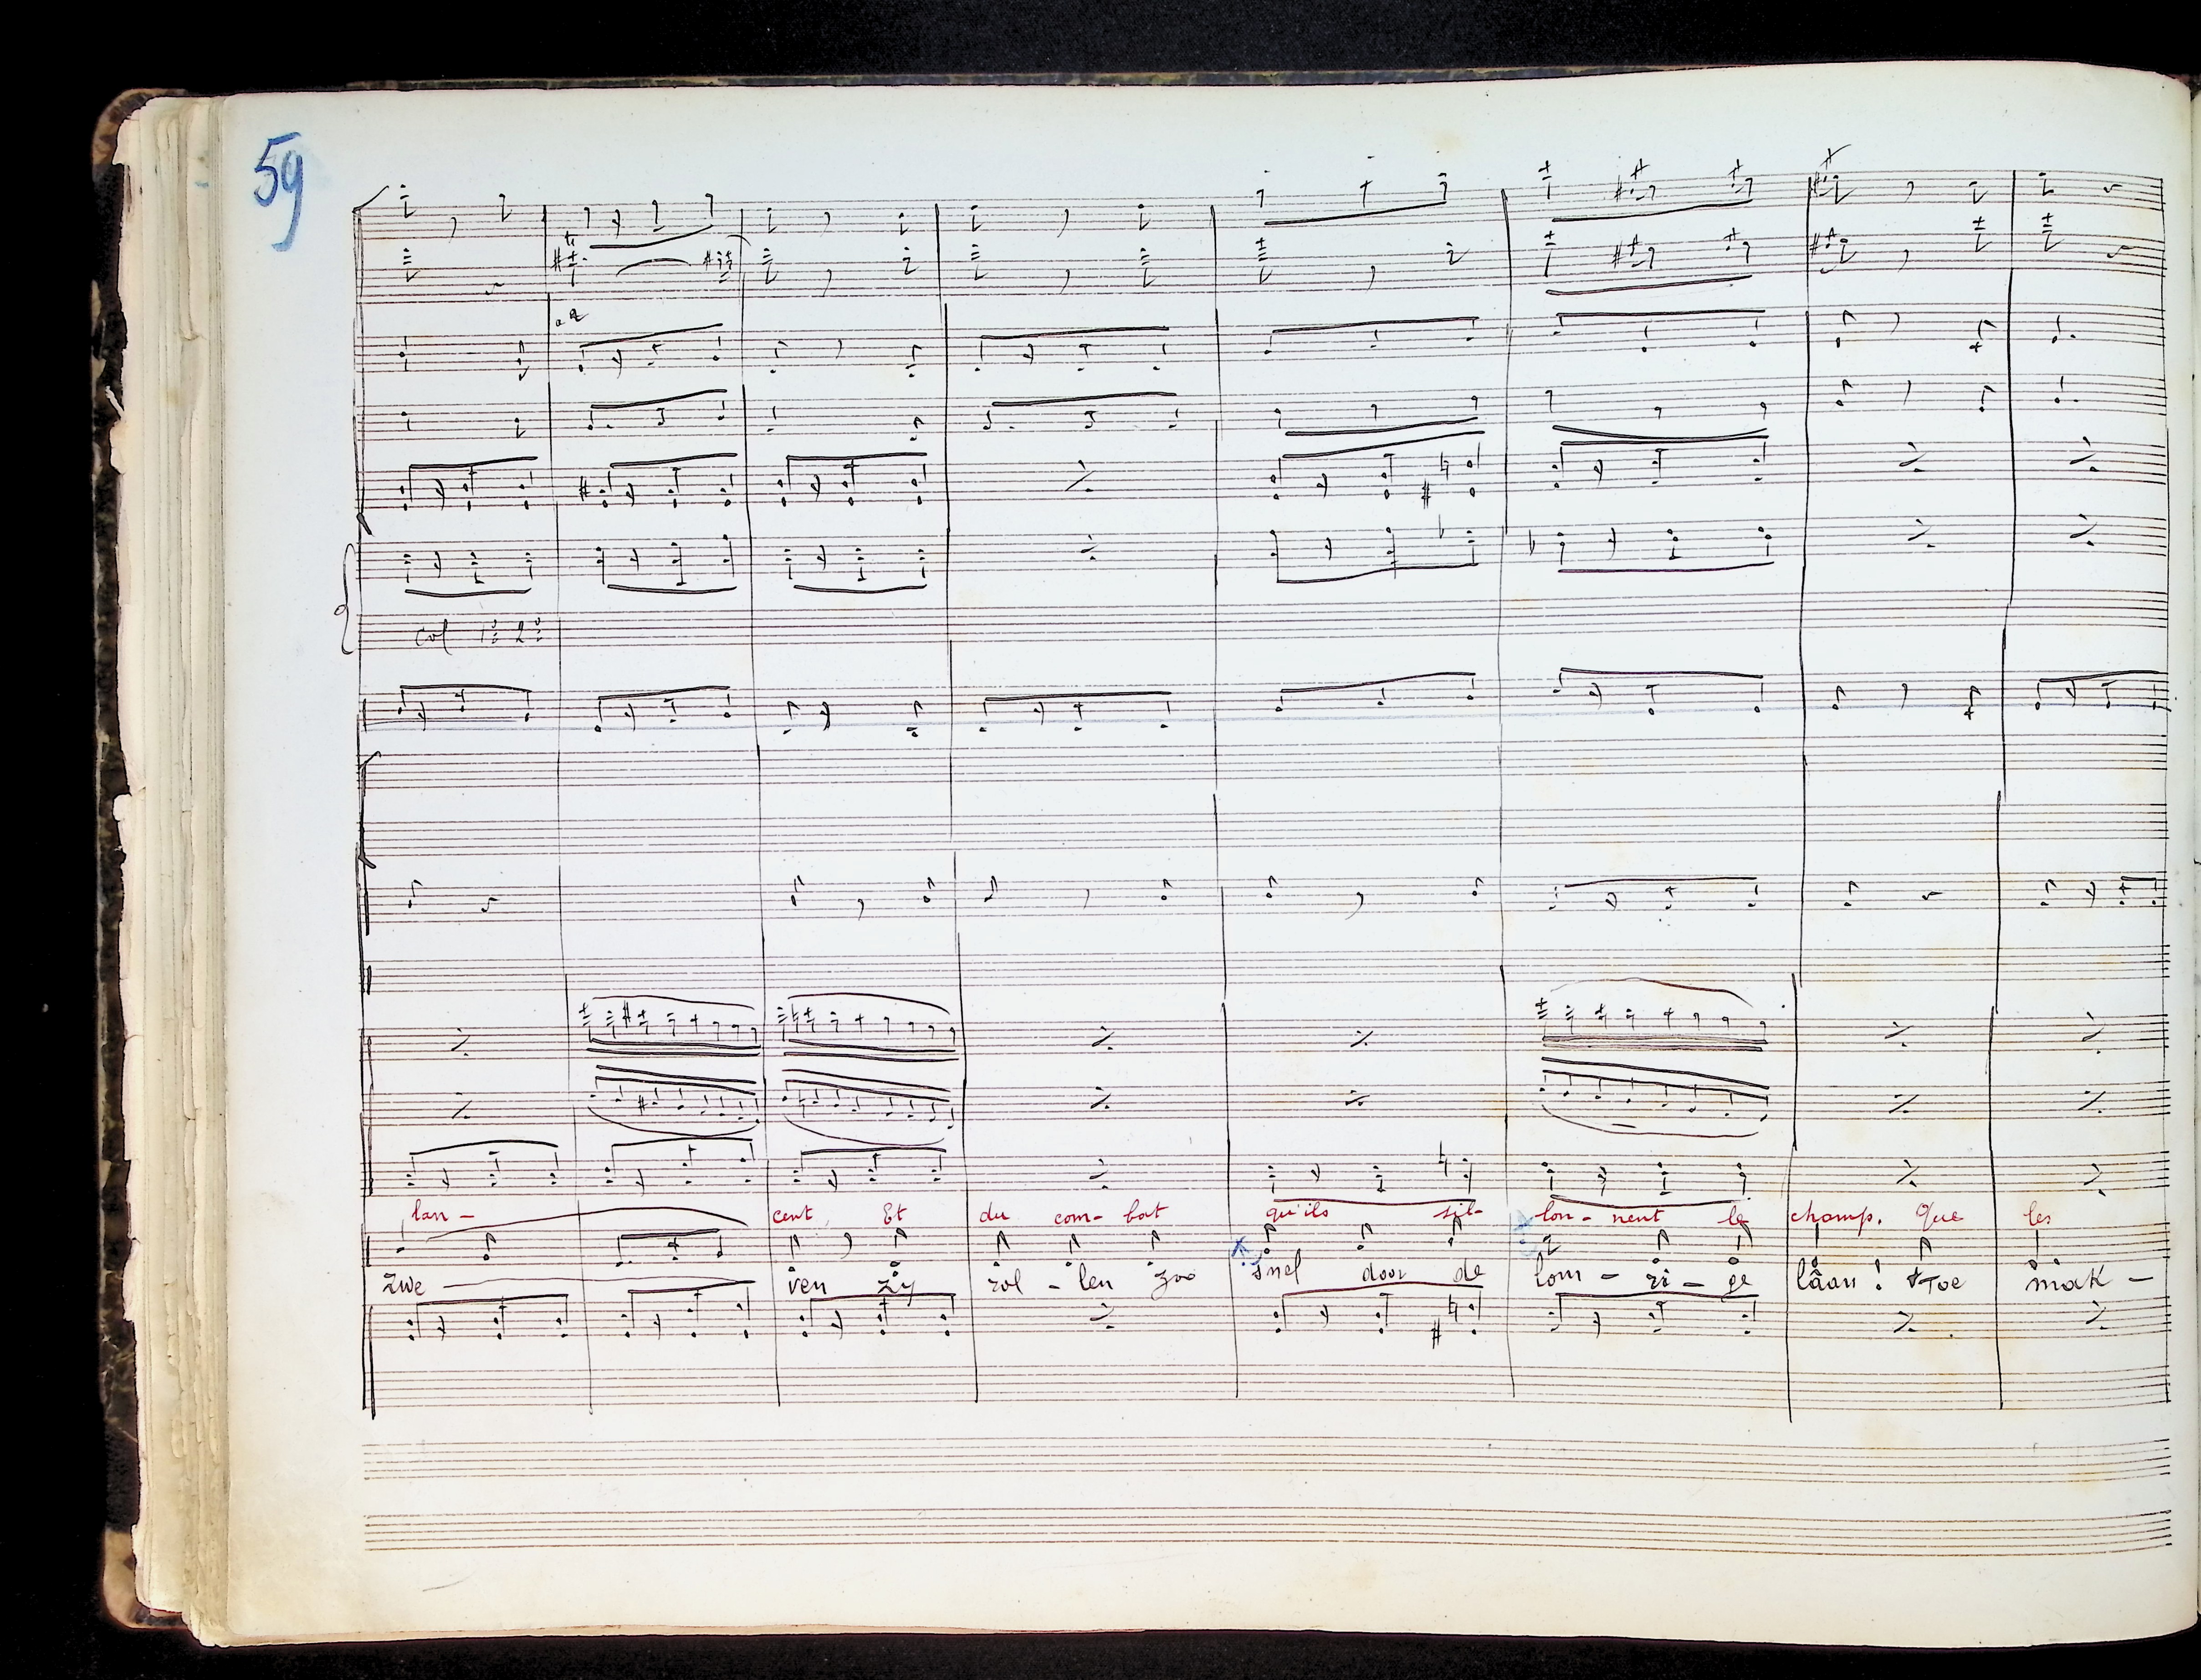 59
a 2
Col 1º 2º
lan - cent, Et du com - bat qu'ils sil- lon - nent le champ. Que les
zwe - ven zy rol - len zoo snel door de lom - ri - ge lâan ! Toe mak -